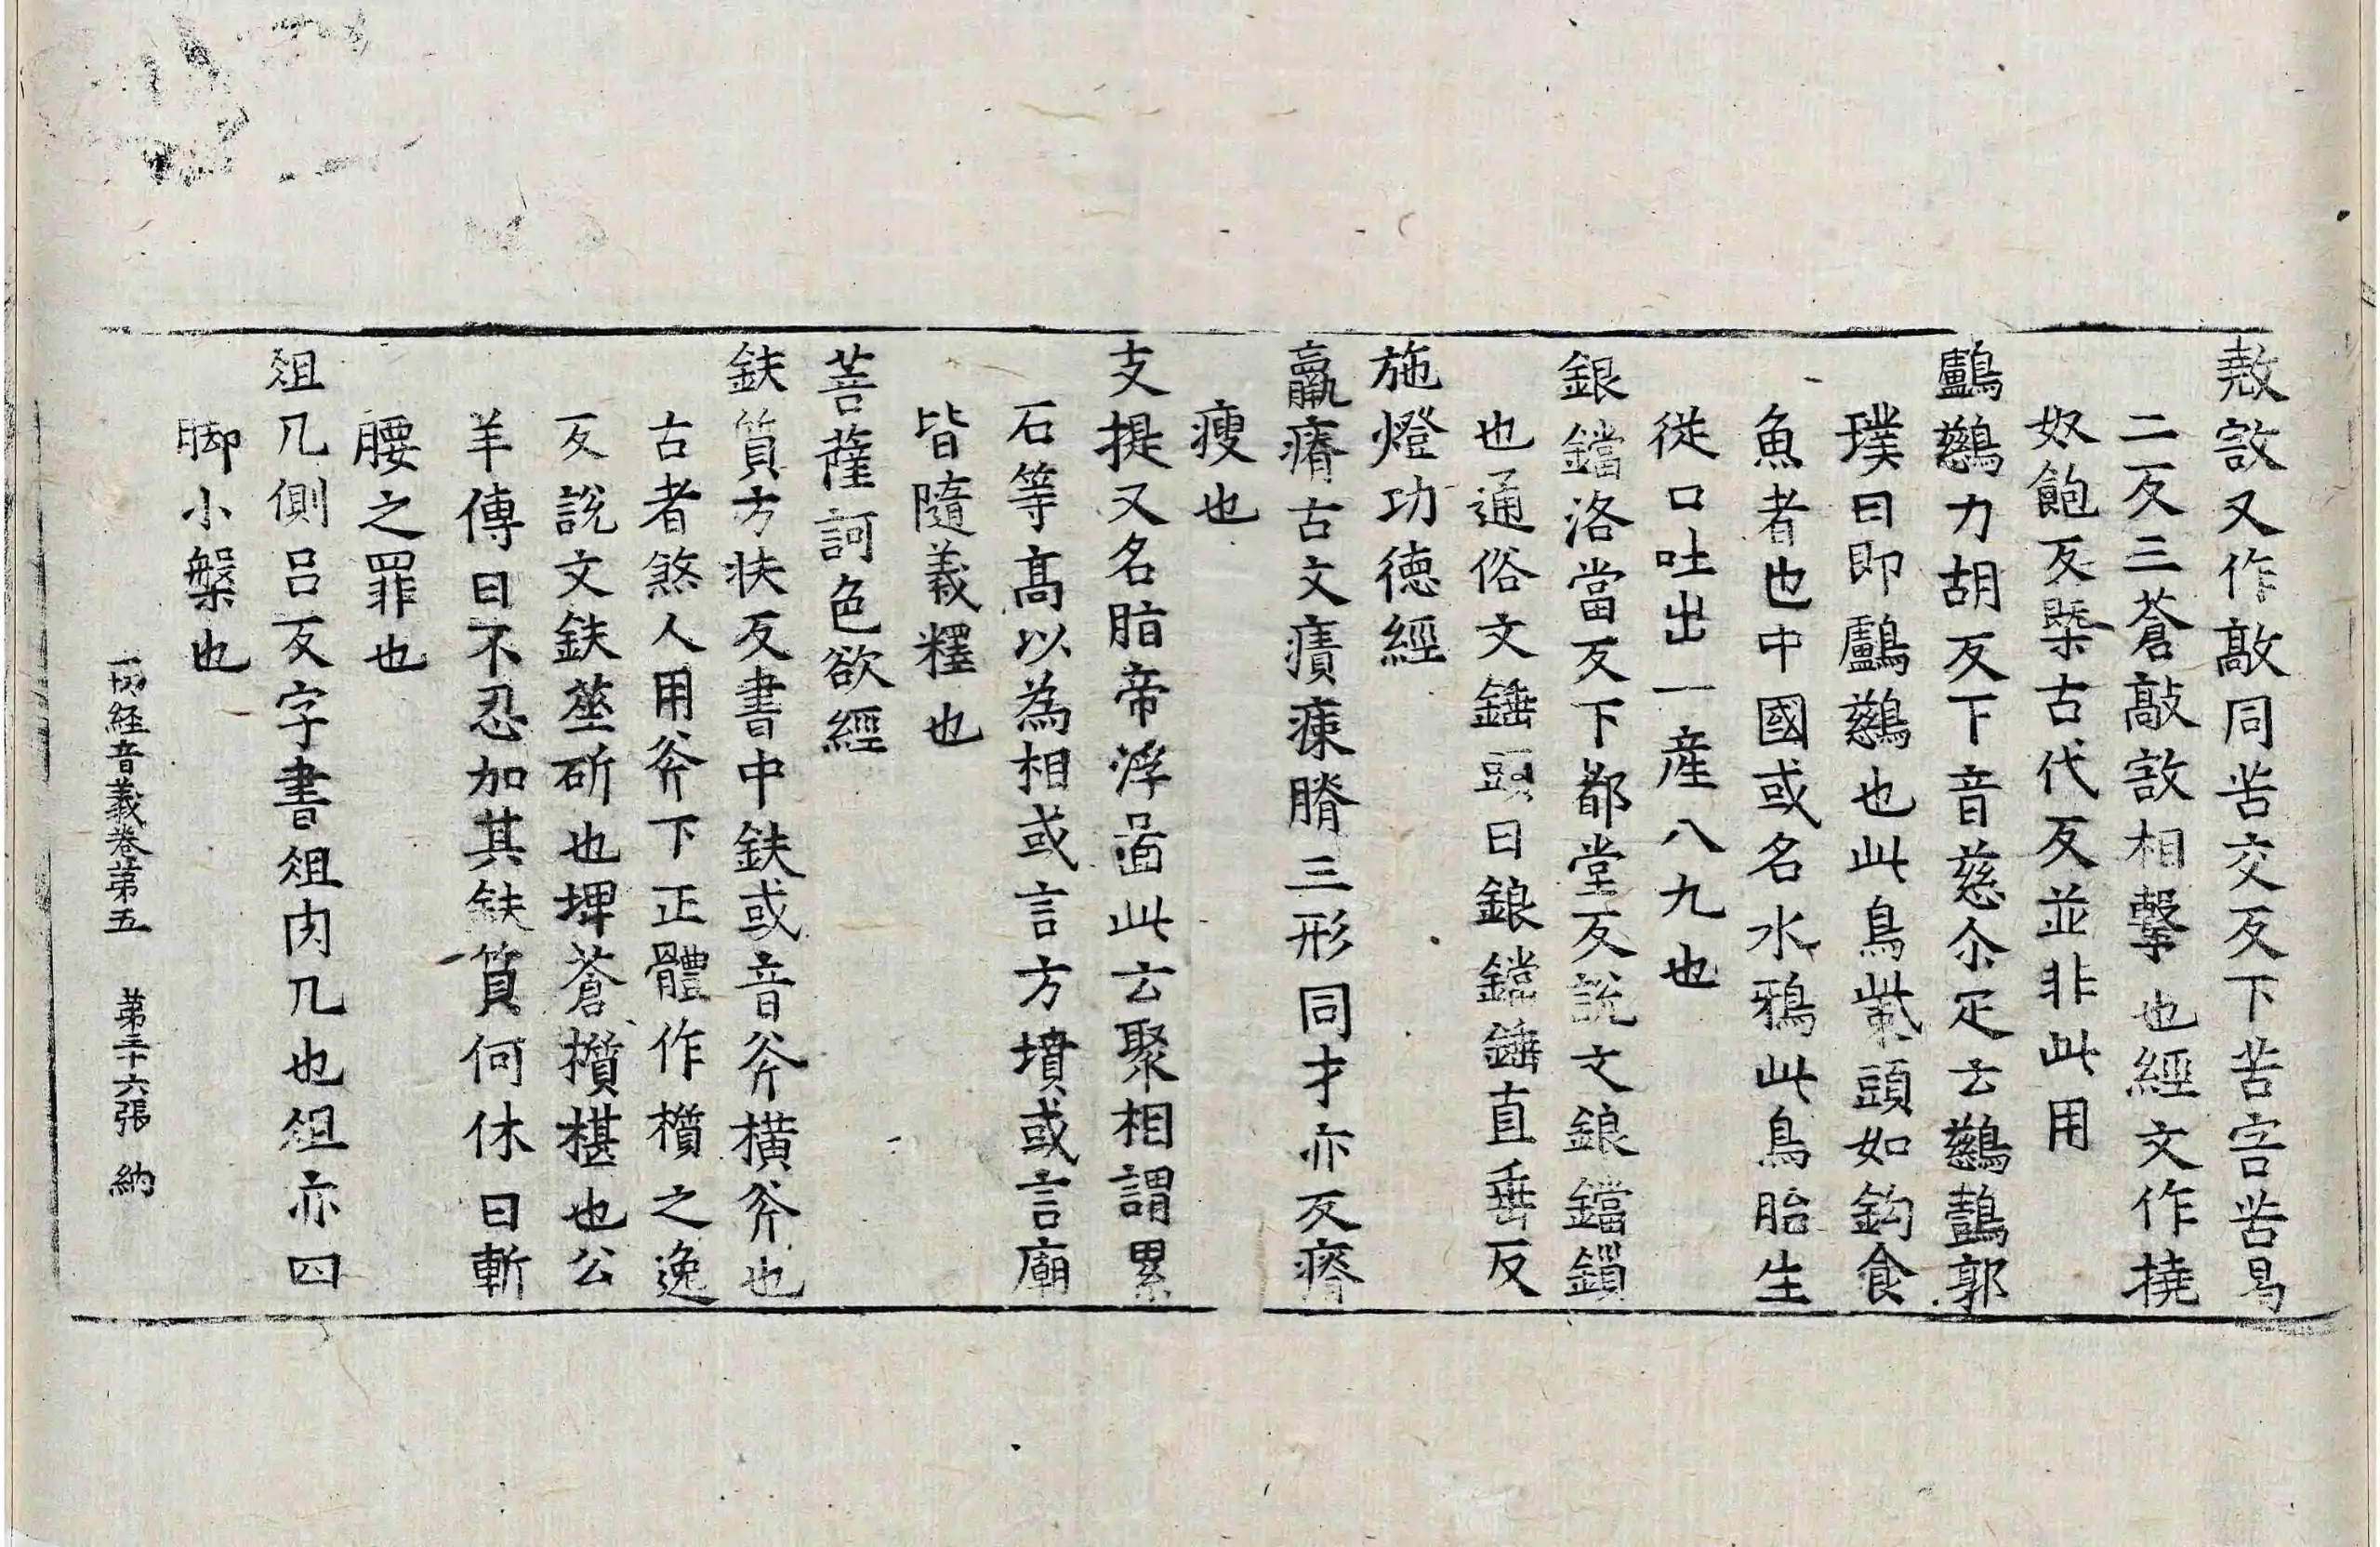 㲉㪃又作敲同苦交反下苦宮苦曷
二反三蒼敲㪃相擊也經文作撓
奴飽反槩古代反並非此用
鸕鷀力胡反下音慈尒疋云鷀鷧郭
璞曰即鸕鷀也此鳥觜頭如鈎食
魚者也中國或名水鵶此鳥胎生
從口吐出一産八九也
銀鐺洛當反下都堂反說文鋃鐺鎻
也通俗文錘頭曰鋃鐺錘直垂反
施燈功德經
羸瘠古文㿊㾊膌三形同才亦反瘠
瘦也
支提又名脂帝浮啚此云聚相謂累
石等髙以為相或言方墳或言廟
皆隨義釋也
菩薩訶色欲經
鈇質方扶反書中鈇或音斧橫斧也
古者煞人用斧下正體作櫍之逸
反說文鈇莝斫也埤蒼櫍椹也公
羊傳曰不忍加其鈇質何休曰斬
腰之罪也
俎几側吕反字書俎肉几也俎亦四
脚小槃也
一切経音義卷第五 第三十六張 納